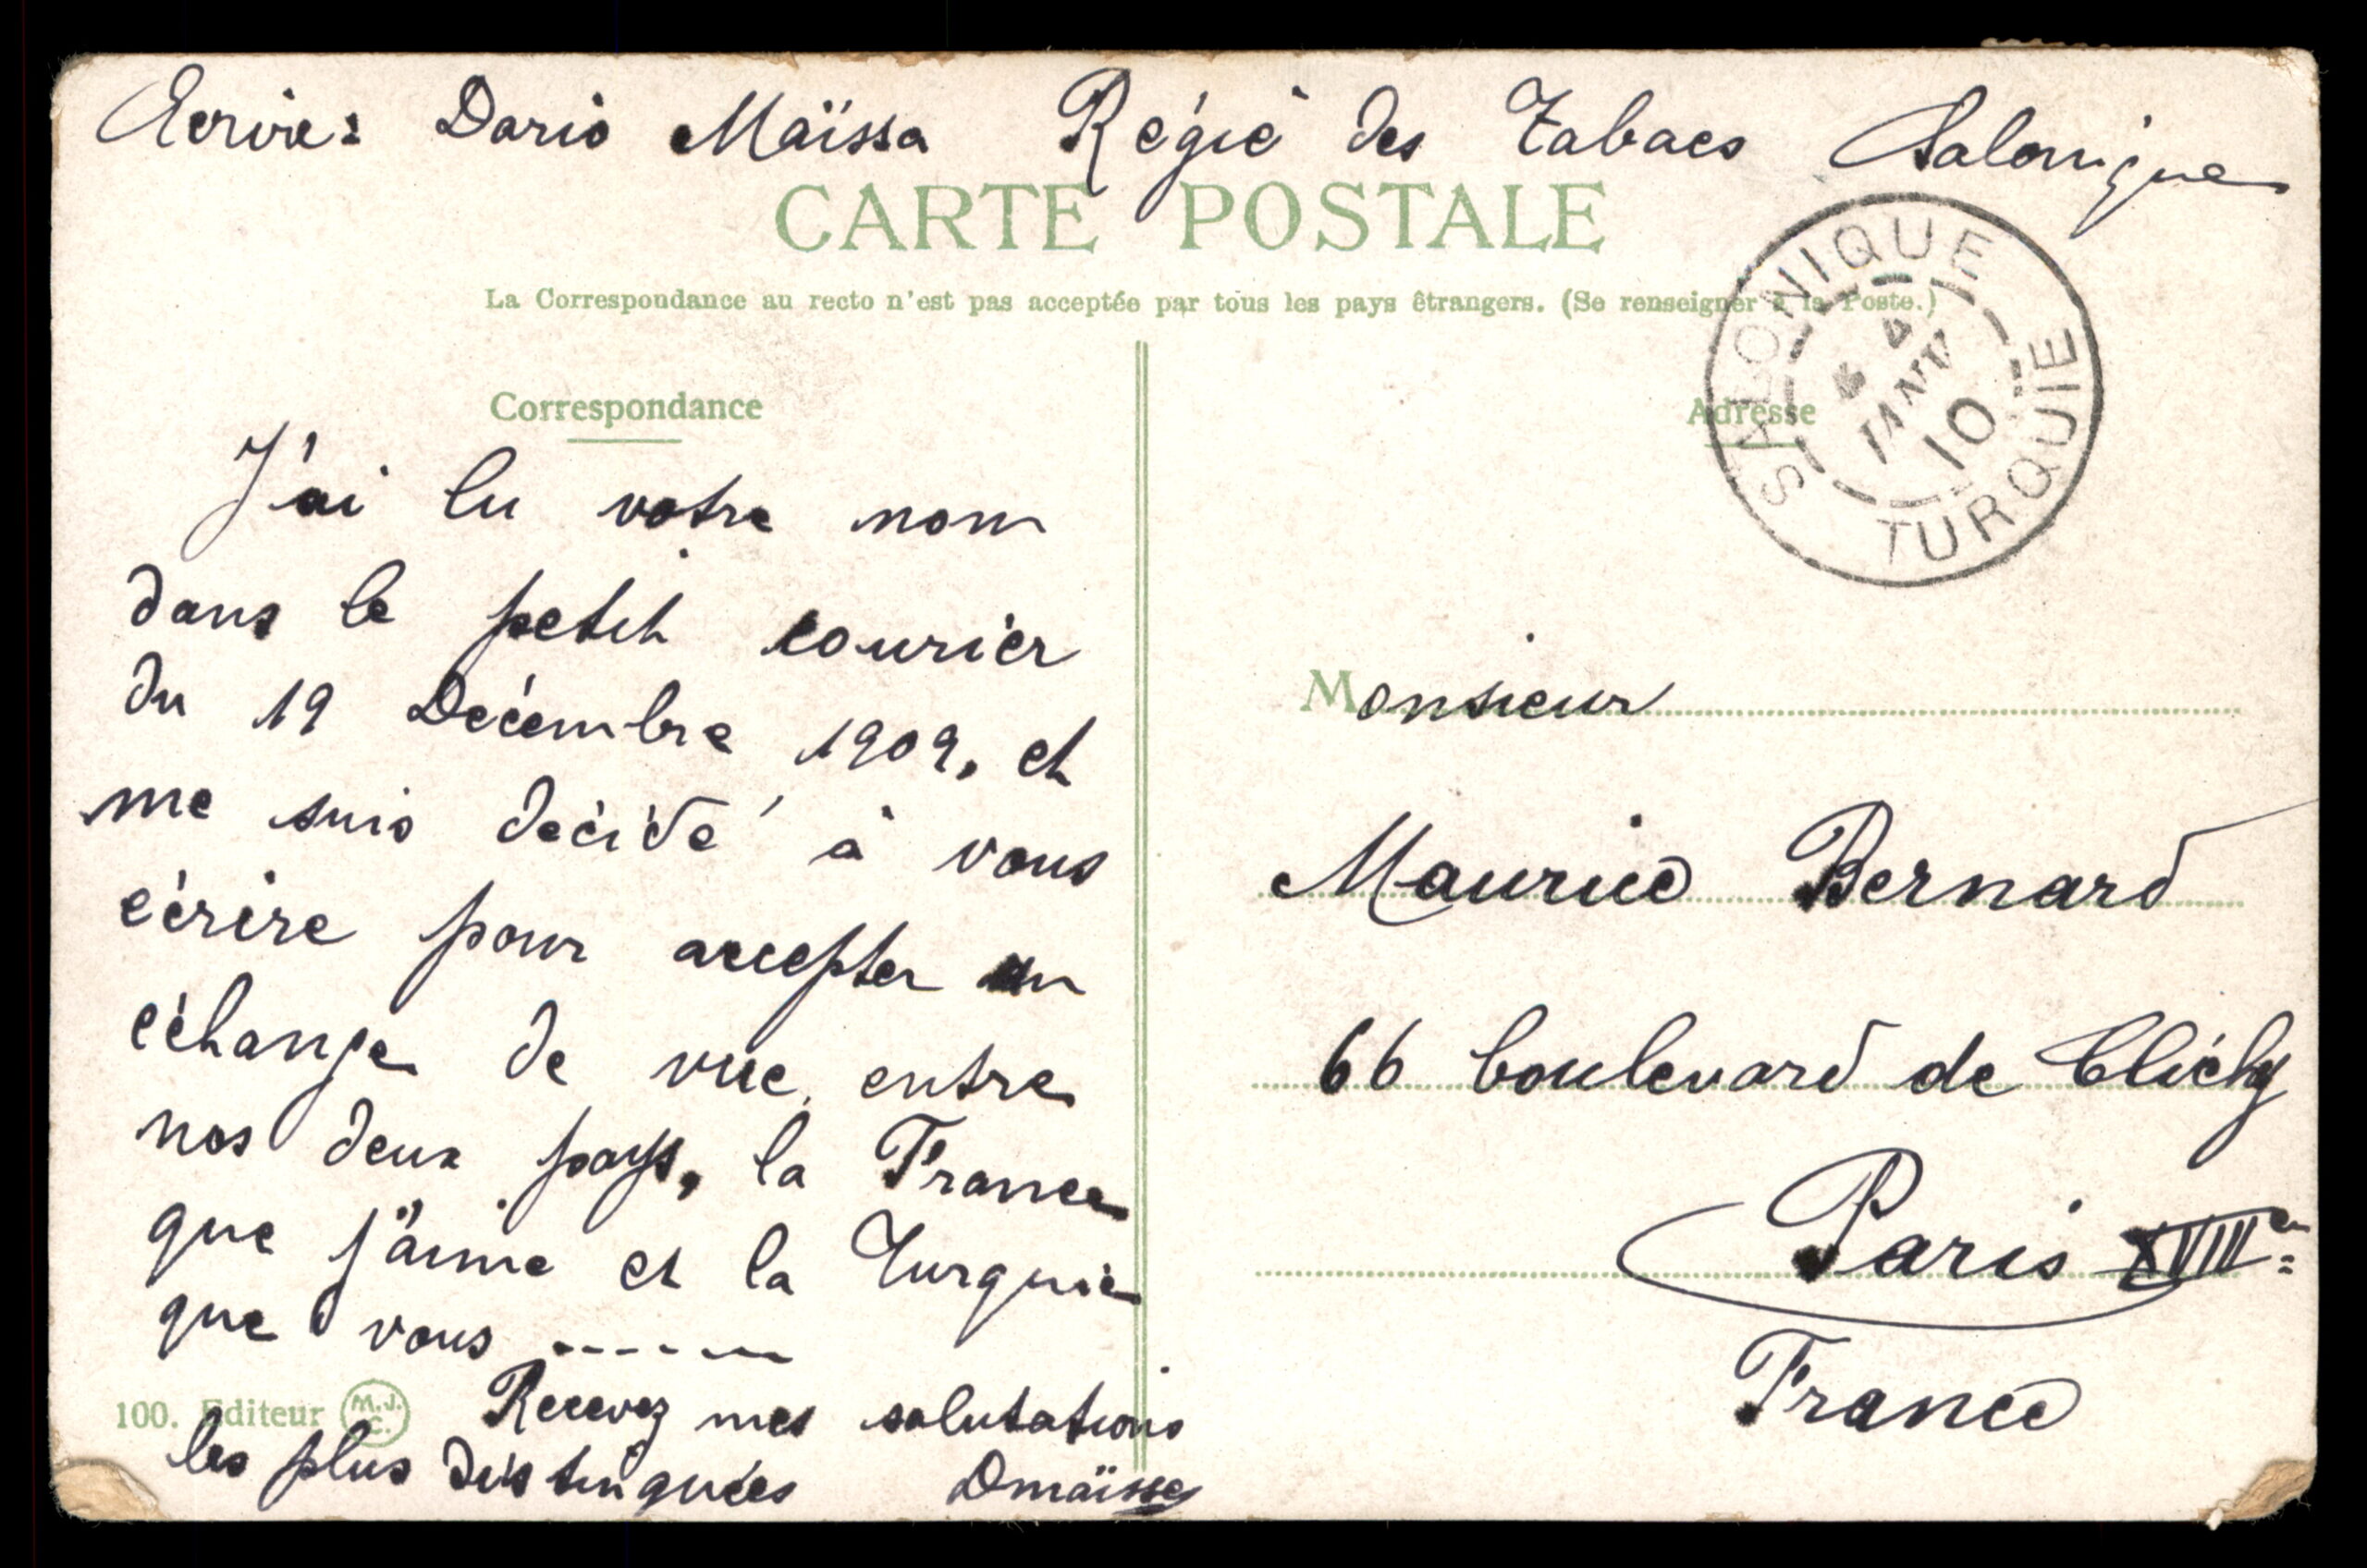 Ecrire: Dario Maïssa Régie des Tabacs Salonique
CARTE POSTALE
La Correspondance au recto n'est pas acceptée par tous les pays étrangers. (Se renseigner à la Poste.)
Correspondance
J'ai lu votre nom
dans le petit courier
du 19 Décembre 1909, et
me suis décidé à vous
écrire pour accepter un
échange de vue entre
nos deux pays, la France
que j'aime et la Turquie
que vous ------
Recevez mes salutations
les plus distinguées DMaïssa
100. Editeur M.J.C.
Adresse
SALONIQUE
4 JANV
10
TURQUIE
Monsieur
Maurice Bernard
66 boulevard de Clichy
Paris XVIIIe
France